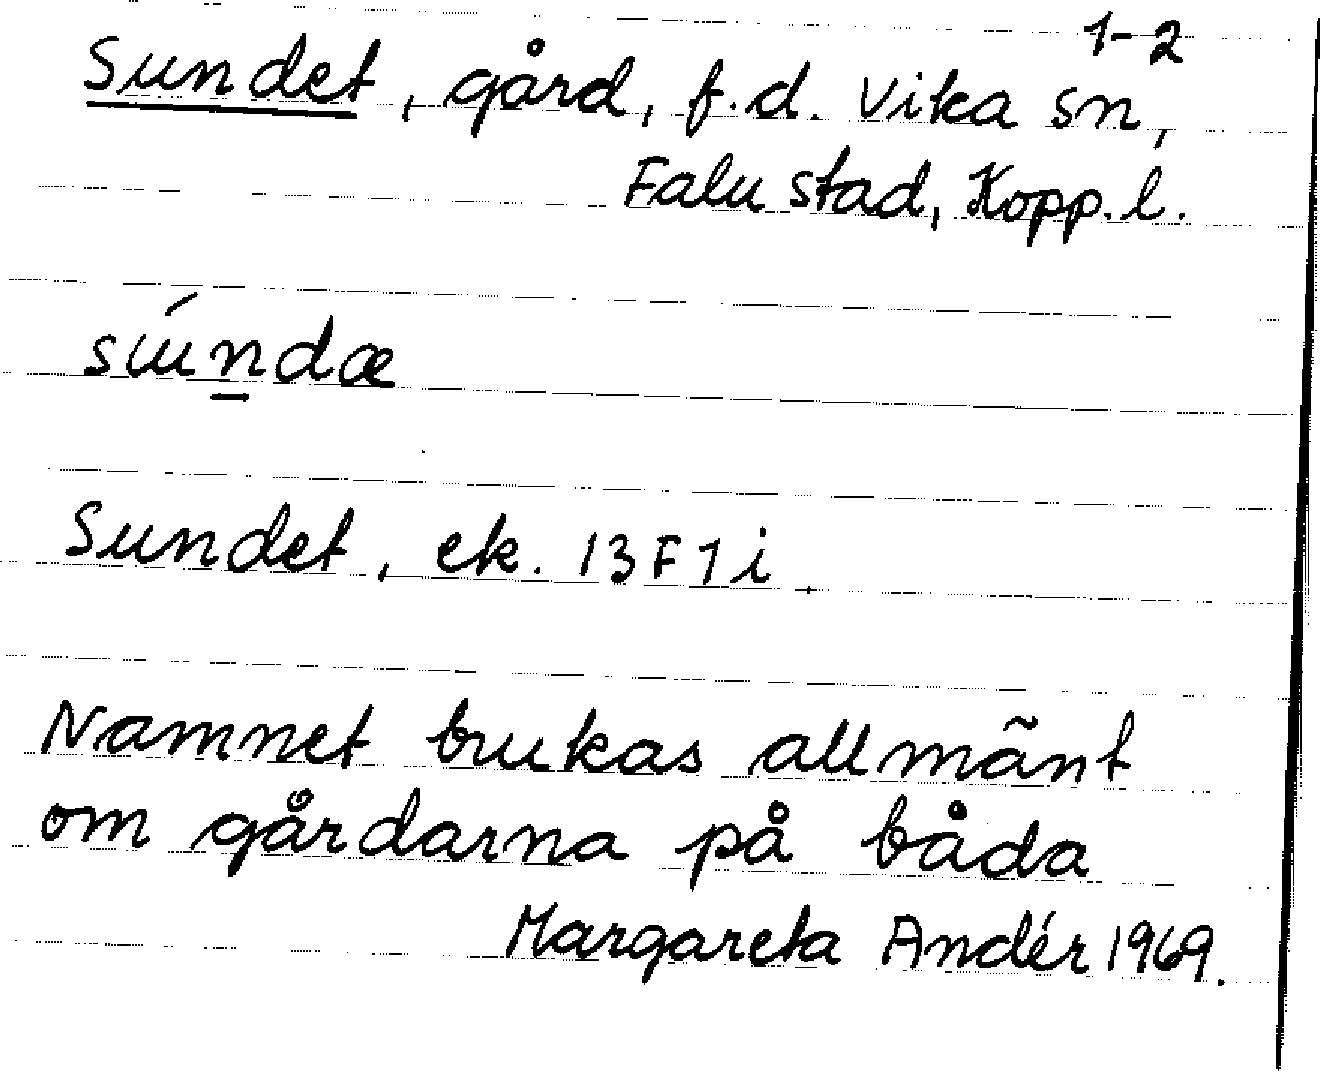 1-2
Sundet, gård, f.d. Vika sn,
Falu stad, Kopp. l.
sú̇ṉdæ
Sundet, ek. 13F1i
Namnet brukas allmänt
om gårdarna på båda
Margareta Andér 1969.